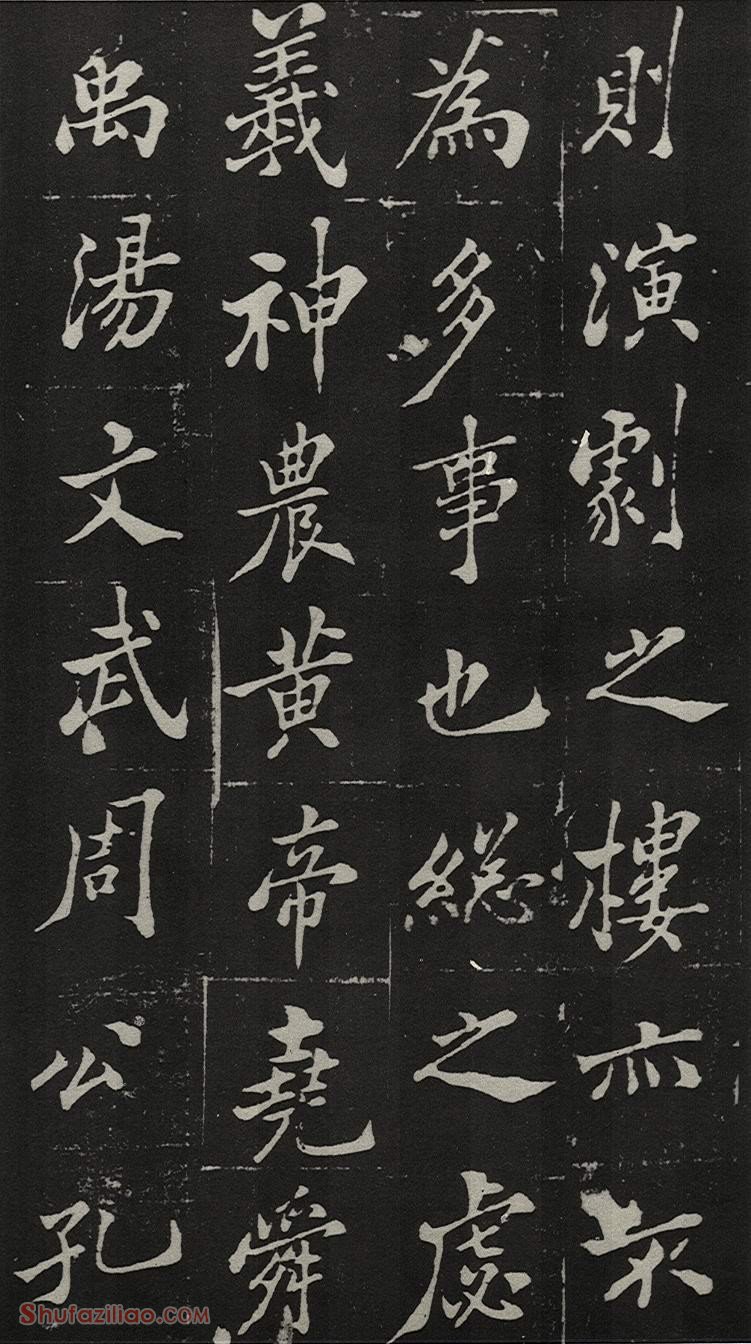 則演劇之樓亦不
為多事也総之虙
羲神農黄帝堯舜
禹湯文武周公孔
Shufaziliao.com